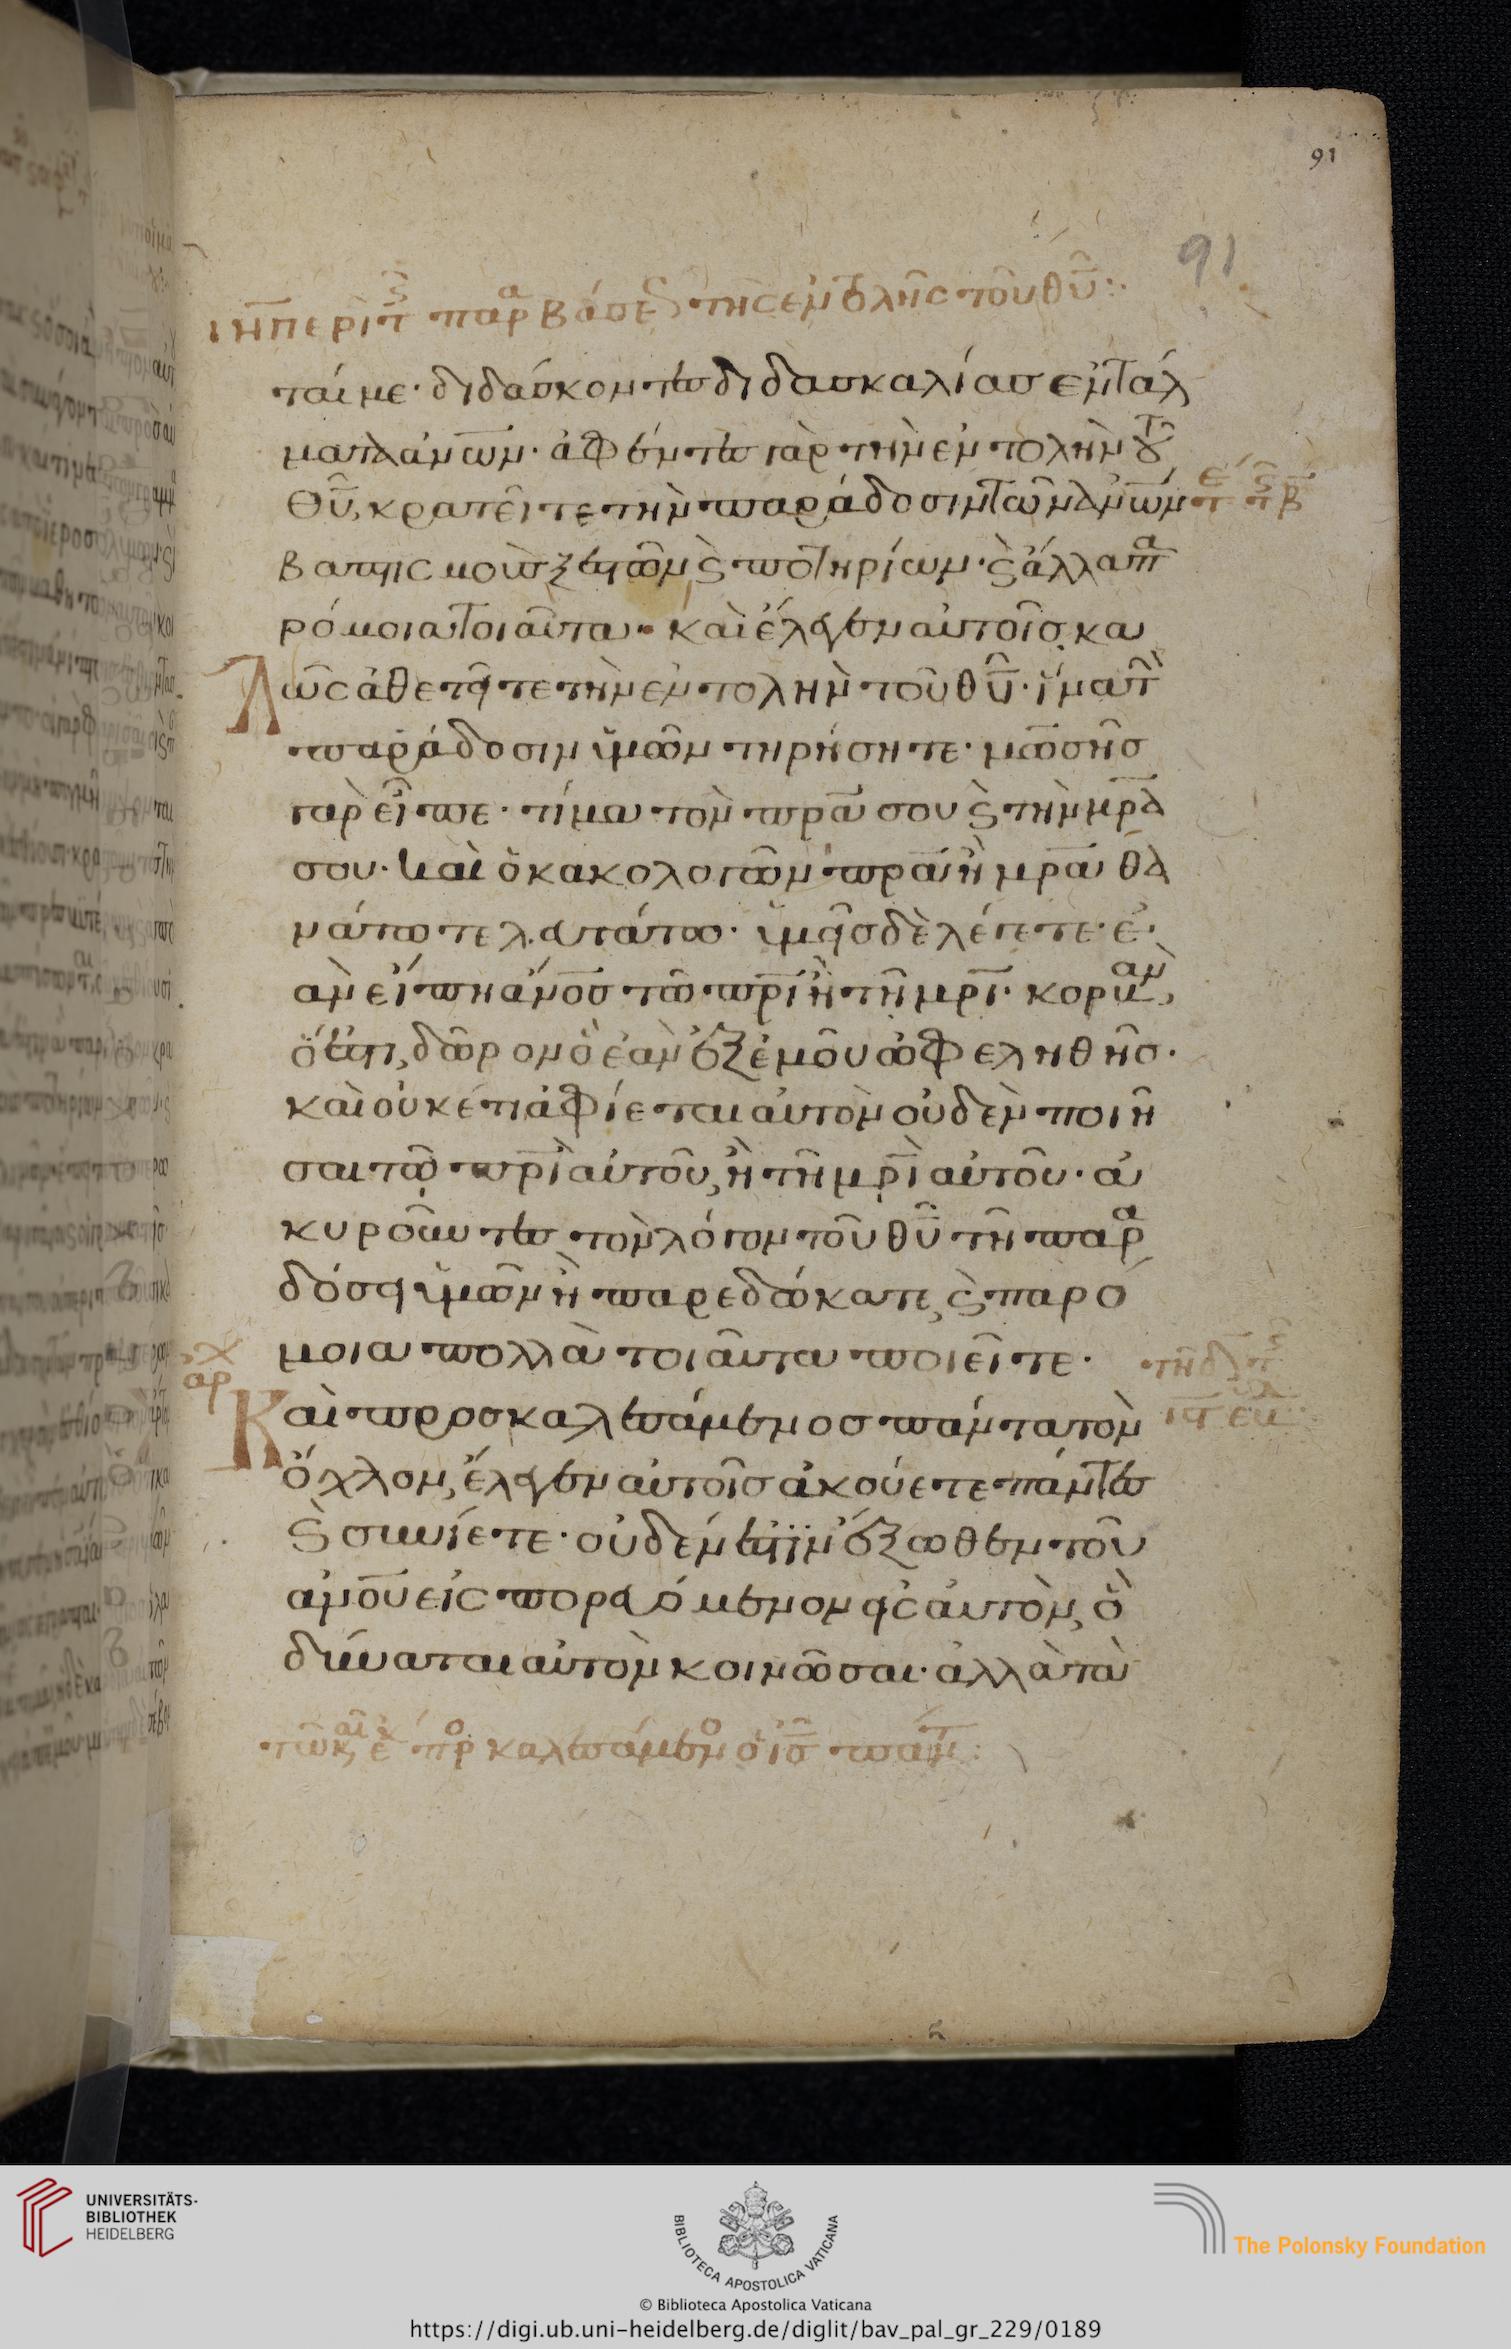 91
91
ιη περὶ τ παρβάσε τῆς ἐμβλῆς τοῦ θῦ:
ταί με· διδάσκοντες διδασκαλίας ἐντάλ
ματα ἀνων· ἀφέντες γὰρ τὴν ἐντολὴν τοῦ
θῦ, κρατεῖτε τὴν παράδοσιν τῶν ἀνων
βαπτισμοὺς ξεστῶν ϛ ποτηρίων· ϛ ἄλλα πα
ρόμοια τοιαῦτα καὶ ἔλεγεν αὐτοῖς, κα
λῶς ἀθετεῖτε τὴν ἐντολὴν τοῦ θῦ· ἵνα τὴν
παράδοσιν ὑμῶν τηρήσητε· μωσῆς
γὰρ εἶπε· τίμα τὸν πρα σου ϛ τὴν μρα
σου· καὶ ὁ κακολογῶν πρα ἢ μρα θα
νάτω τελευτάτω· ὑμεῖς δὲ λέγετε· ἐ
ὰν εἴπη ἄνος τῶ πρι ἢ τῆ μρι· κορβᾶν,
ὅ ἐστι, δῶρον ὃ ἐὰν ἐξ ἐμοῦ ὠφεληθῆς·
καὶ οὐκέτι ἀφίεται αὐτὸν οὐδὲν ποιῆ
σαι τῶ πρι αὐτοῦ, ἢ τῆ μρι αὐτοῦ· ἀ
κυροῦντες τὸν λόγον τοῦ θῦ τῆ παρα
δόσει ὑμῶν ἧ παρεδώκατε, ϛ παρό
μοια πολλὰ τοιαῦτα ποιεῖτε·
αρχ
Καὶ προσκαλεσάμενος πάντα τὸν
ὄχλον, ἔλεγεν αὐτοῖς ἀκούετέ πάντες
ϛ συνίετε· οὐδέν ἐστιν ἔξωθεν τοῦ
ἀνου εἰσπορευόμενον εἰς αὐτὸν, ὃ
δύναται αὐτὸν κοινῶσαι· ἀλλὰ τὰ
τῶ κ, ἐ προκαλεσάμενο ὁ ις πάντ:
UNIVERSITÄTS-
BIBLIOTHEK
HEIDELBERG
BIBLIOTECA APOSTOLICA VATICANA
The Polonsky Foundation
© Biblioteca Apostolica Vaticana
https://digi.ub.uni-heidelberg.de/diglit/bav_pal_gr_229/0189